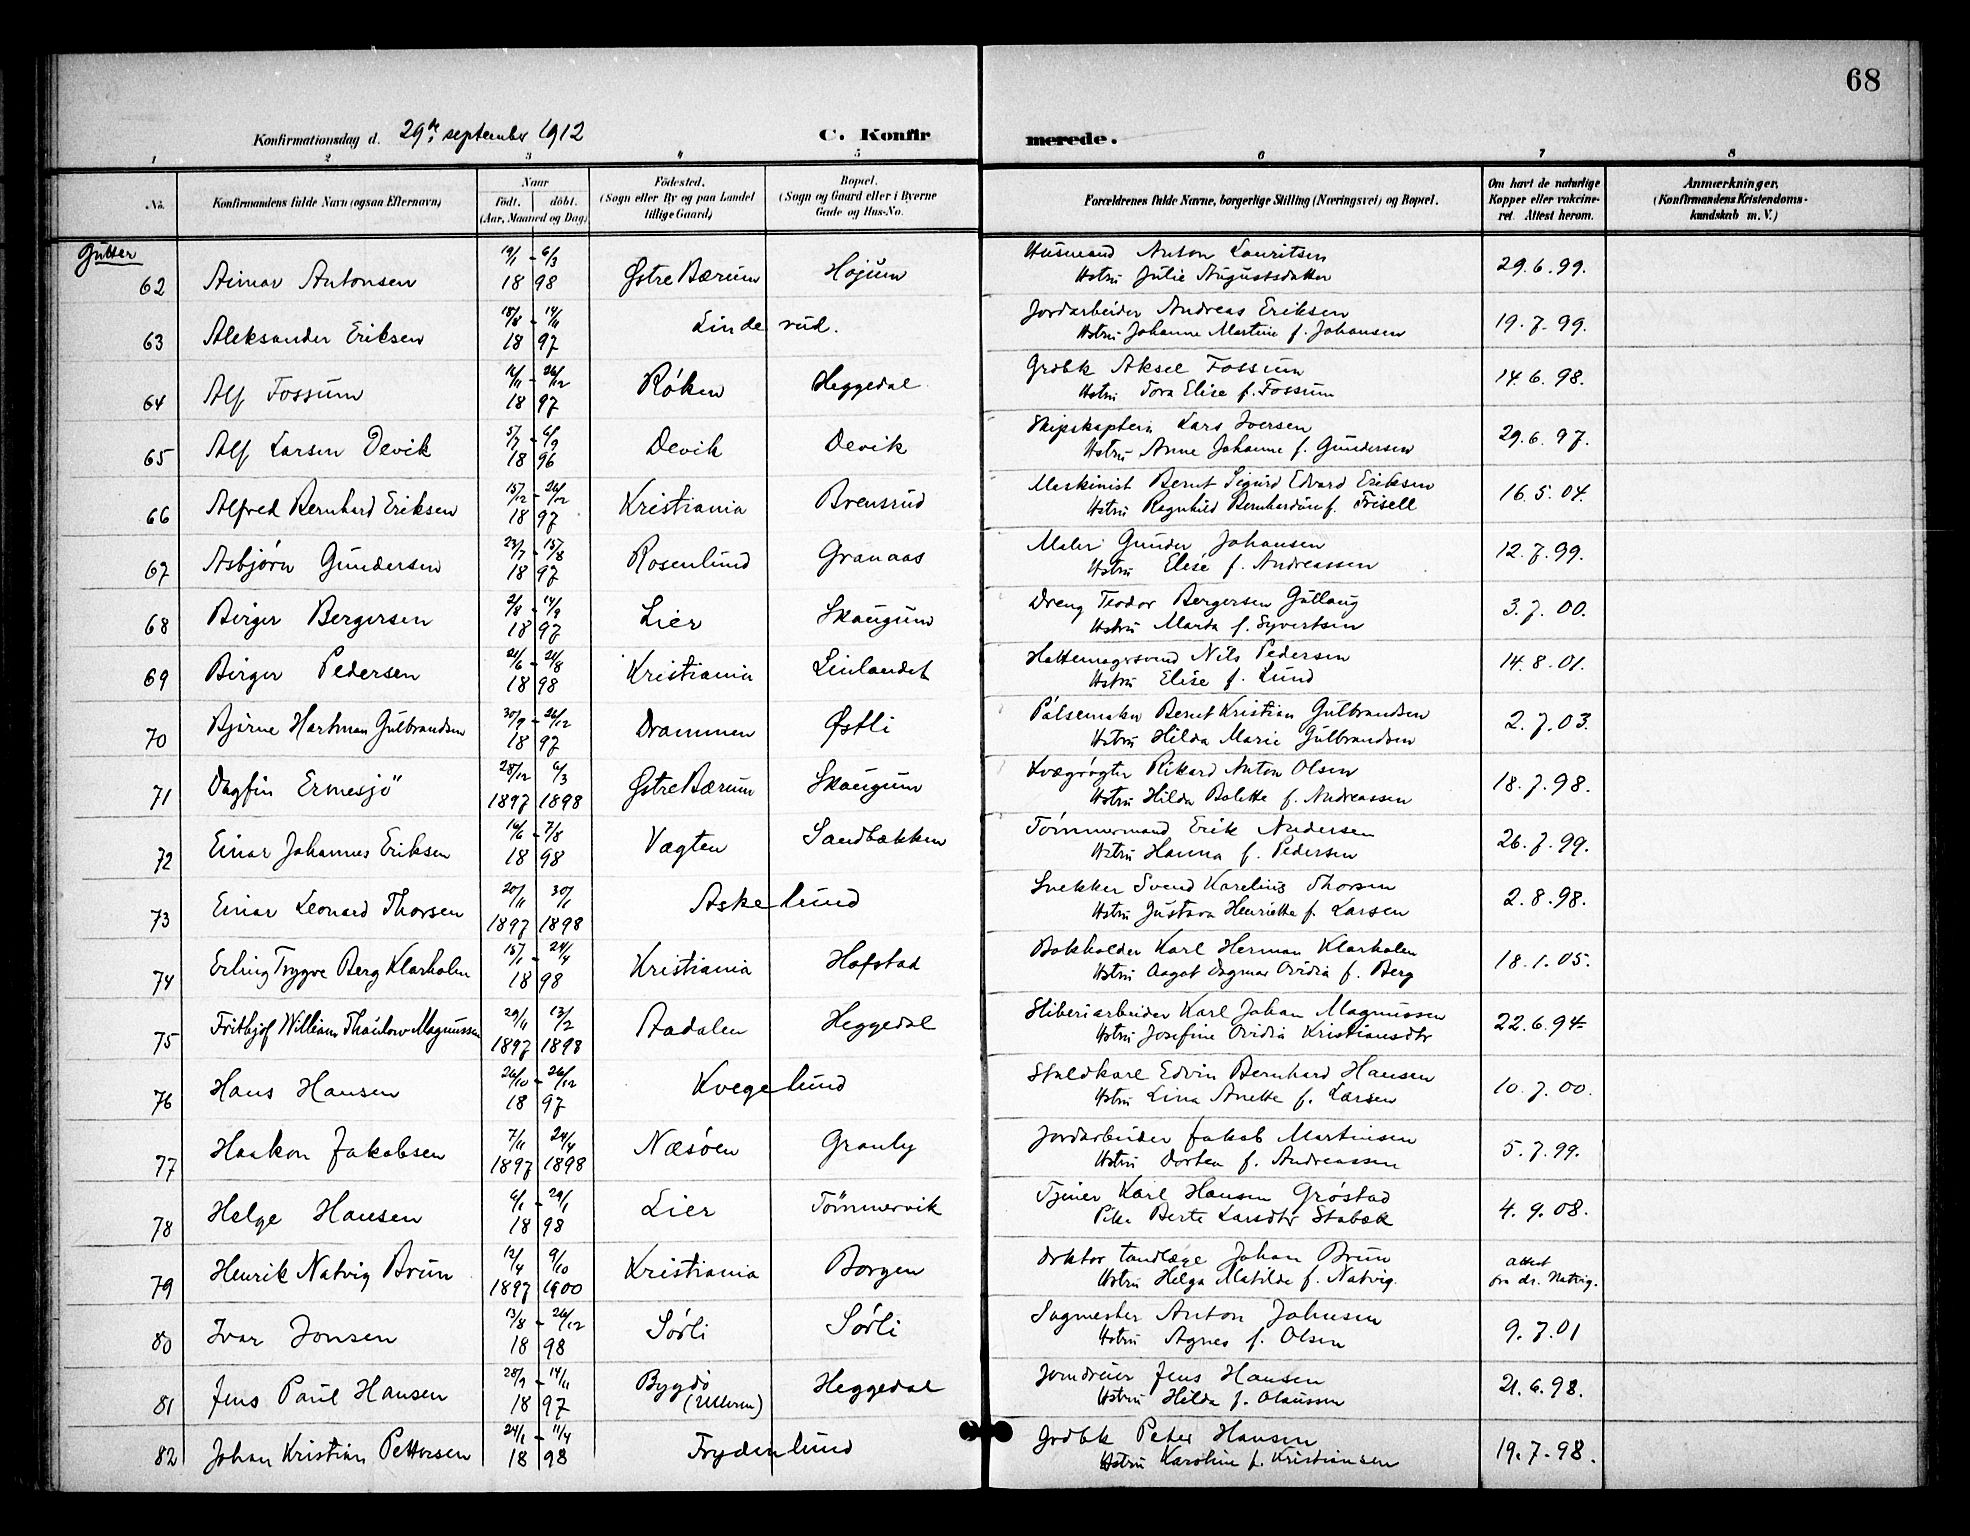 68
Konfirmationsdag d. 29de september 1912
C. Konfirmerede.
1 2 3 4 5 6 7 8
No.
Konfirmandens fulde Navn (ogsaa Efternavn)
Naar født. døbt. (Aar, Maaned og Dag)
Fødested. (Sogn eller By og paa Landet tillige Gaard)
Bopæl. (Sogn og Gaard eller i Byerne Gade og Hus-No.
Forældrenes fulde Navne, borgerlige Stilling (Næringsvei) og Bopæl.
Om havt de naturlige Kopper eller vakcineret. Attest herom.
Anmærkninger, (Konfirmandens Kristendomskundskab m. V.)
Gutter
62 Aimar Antonsen 19/1 - 6/3 1898 Østre Bærum Højum Husmand Anton Lauritsen 29.6.99.
Hstru Julie Augustsdatter
63 Aleksander Eriksen 18/8 - 14/11 1897 Linderud. Jordarbeider Andreas Eriksen 19.7.99.
Hstru Johanne Martine f. Johansen
64 Alf Fossum 12/11 - 26/12 1897 Røken Heggedal Grdbk Aksel Fossum 14.6.98.
Hstru Tora Elise f. Fossum
65 Alf Larsen Devik 5/7 - 6/9 1896 Devik Devik Skipskaptein Lars Iversen 29.6.97.
Hstru Anne Johanne f. Gundersen
66 Alfred Bernhard Eriksen 15/12 - 26/12 1897 Kristiania Brensrud Maskinist Bernt Sigurd Edvard Eriksen 16.5.04.
Hstru Ragnhild Bernhardine f. Frisell
67 Asbjørn Gundersen 23/7 - 15/8 1897 Rosenlund Granaas Maler Gunder Johansen 12.7.99.
Hstru Elise f. Andreassen
68 Birger Bergersen 2/8 - 14/9 1897 Lier Skaugum Dreng Teodor Bergersen Gullaug 3.7.00.
Hstru Marta f. Syvertsen
69 Birger Pedersen 21/6 - 21/8 1898 Kristiania Linlandet Hattemagersvend Nils Pedersen 14.8.01.
Hstru Elise f. Lund
70 Bjarne Hartman Gulbrandsen 30/9 - 26/12 1897 Drammen Østli Pølsemaker Bernt Kristian Gulbrandsen 2.7.03.
Hstru Hilda Marie Gulbrandsen
71 Dagfin Ermesjö 28/12 6/3 1897 1898 Østre Bærum Skaugum Kvægrøgter Rikard Anton Olsen 18.7.98.
Hstru Hilda Bolette f. Andreassen
72 Einar Johannes Eriksen 16/6 - 7/8 1898 Vagten Sandbækken Tømmermand Erik Andersen 26.7.99.
Hstru Hanna f. Pedersen
73 Einar Leonard Thorsen 20/11 30/1 1897 1898 Askelund Snekker Svend Karelius Thorsen 2.8.98.
Hstru Gustava Henriette f. Larsen
74 Erling Trygve Berg Klarholm 15/1 - 24/4 1898 Kristiania Hofstad Bokholder Karl Herman Klarholm 18.1.05.
Hstru Aagot Dagmar Ovidia f. Berg
75 Frithjof William Thaulow Magnussen 29/11 13/2 1897 1898 Aadalen Heggedal Sliberiarbeider Karl Johan Magnussen 22.6.94.
Hstru Josefine Ovidia Kristiansdtr
76 Hans Hansen 26/10 - 26/12 1897 Kvegelund Staldkarl Edvin Bernhard Hansen 10.7.00.
Hstru Lina Anette f. Larsen
77 Haakon Jakobsen 7/11 24/4 1897 1898 Næsøen Granly Jordarbeider Jakob Martinsen 5.7.99.
Hstru Dortea f. Andreassen
78 Helge Hansen 6/1 - 29/1 1898 Lier Tømmervik Tjener Karl Hansen Grøstad 4.9.08.
Pike Berte Larsdtr Stabæk
79 Henrik Natvig Brun 12/4 9/10 1897 1900 Kristiania Borgen Doktor tandlæge Johan Brun attest
Hstru Helga Matilde f. Natvig. fra dr. Natvig.
80 Ivar Jonsen 13/8 - 26/12 1898 Sørli Sørli Sagmester Anton Johnsen 9.7.01
Hstru Agnes f. Olsen
81 Jens Paul Hansen 28/9 - 14/11 1897 Bygdø (Ullern) Heggedal Jerndreier Jens Hansen 21.6.98.
Hstru Hilda f. Olaussen
82 Johan Kristian Pettersen 24/1 - 11/4 1898 Frydenlund Grdbk Peter Hansen 19.7.98.
Hstru Karoline f. Kristiansen